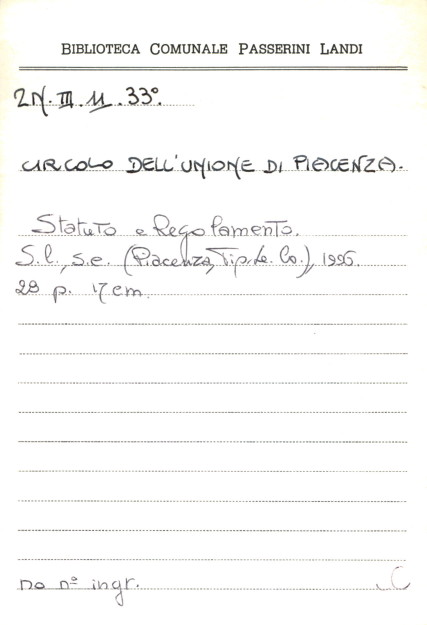 BIBLIOTECA COMUNALE PASSERINI LANDI
2N. III. 11. 33º.
CIRCOLO DELL'UNIONE DI PIACENZA.
Statuto e Regolamento.
S.l., s.e. (Piacenza, Tip. Le. Co.),
p. 17 cm.
no nº ingr.